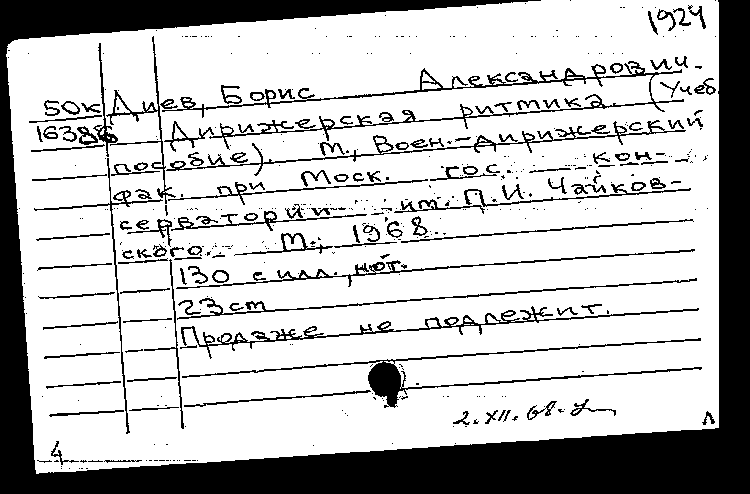 1924
50к Диев, Борис Александрович.
Дирижерская ритмика. (Учеб.
пособие). М., Воен.-дирижерский
фак. при Моск. гос. кон-
серватории им. П.И. Чайков-
ского. М., 1968.
130 с илл., нот.
23 cm
Продаже не подлежит.
2.XII.68.
4 л